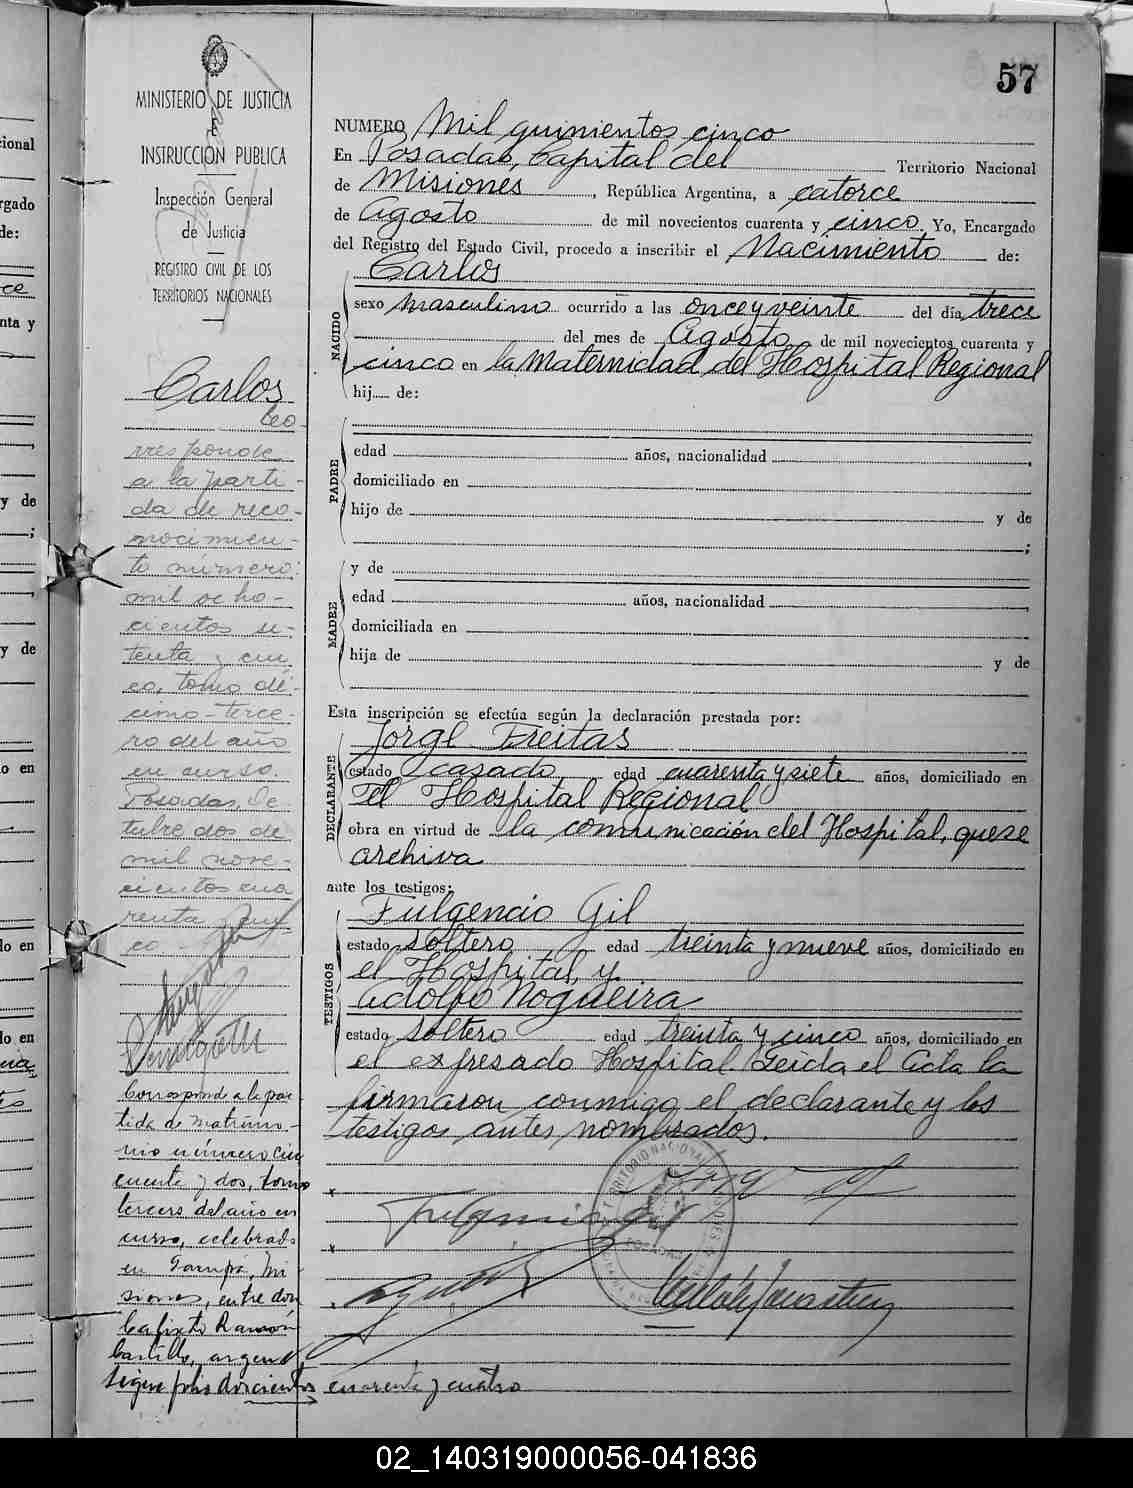 57
MINISTERIO DE JUSTICIA
E
INSTRUCCION PUBLICA
Inspección General
de Justicia
REGISTRO CIVIL DE LOS
TERRITORIOS NACIONALES
NUMERO Mil quinientos cinco
En Posadas, Capital del Territorio Nacional
de Misiones, República Argentina, a catorce
de Agosto de mil novecientos cuarenta y cinco Yo, Encargado
del Registro del Estado Civil, procedo a inscribir el Nacimiento de:
Carlos
NACIDO
sexo masculino ocurrido a las once y veinte del día trece
del mes de Agosto de mil novecientos cuarenta y
cinco en la Maternidad del Hospital Regional
hij de:
PADRE
edad años, nacionalidad
domiciliado en
hijo de y de
;
MADRE
y de
edad años, nacionalidad
domiciliada en
hija de y de
Esta inscripción se efectúa según la declaración prestada por:
DECLARANTE
Jorge Freitas
estado casado, edad cuarenta y siete años, domiciliado en
el Hospital Regional
obra en virtud de la comunicación del Hospital, que se
archiva
ante los testigos:
TESTIGOS
Fulgencio Gil
estado soltero edad treinta y nueve años, domiciliado en
el Hospital, y
Adolfo Nogueira
estado soltero edad treinta y cinco años, domiciliado en
el expresado Hospital. Leída el Acta la
firmaron conmigo el declarante y los
testigos antes nombrados.
Carlos
Co-
rresponde
a la parti-
da de reco-
nocimien-
to número:
mil ocho-
cientos se-
tenta y cin
co, tomo dé-
cimo-terce-
ro del año
en curso.
Posadas, Oc
tubre dos de
mil nove-
cientos cua
renta y cin
co
Corresponde a la par
tida de matrimo-
nio número cin
cuenta y dos, tomo
tercero del año en
curso, celebrado
en Garupá, Mi
siones, entre don
Calixto Ramón
Castillo, argent
Sigue folio doscientos cuarenta y cuatro
02_140319000056-041836